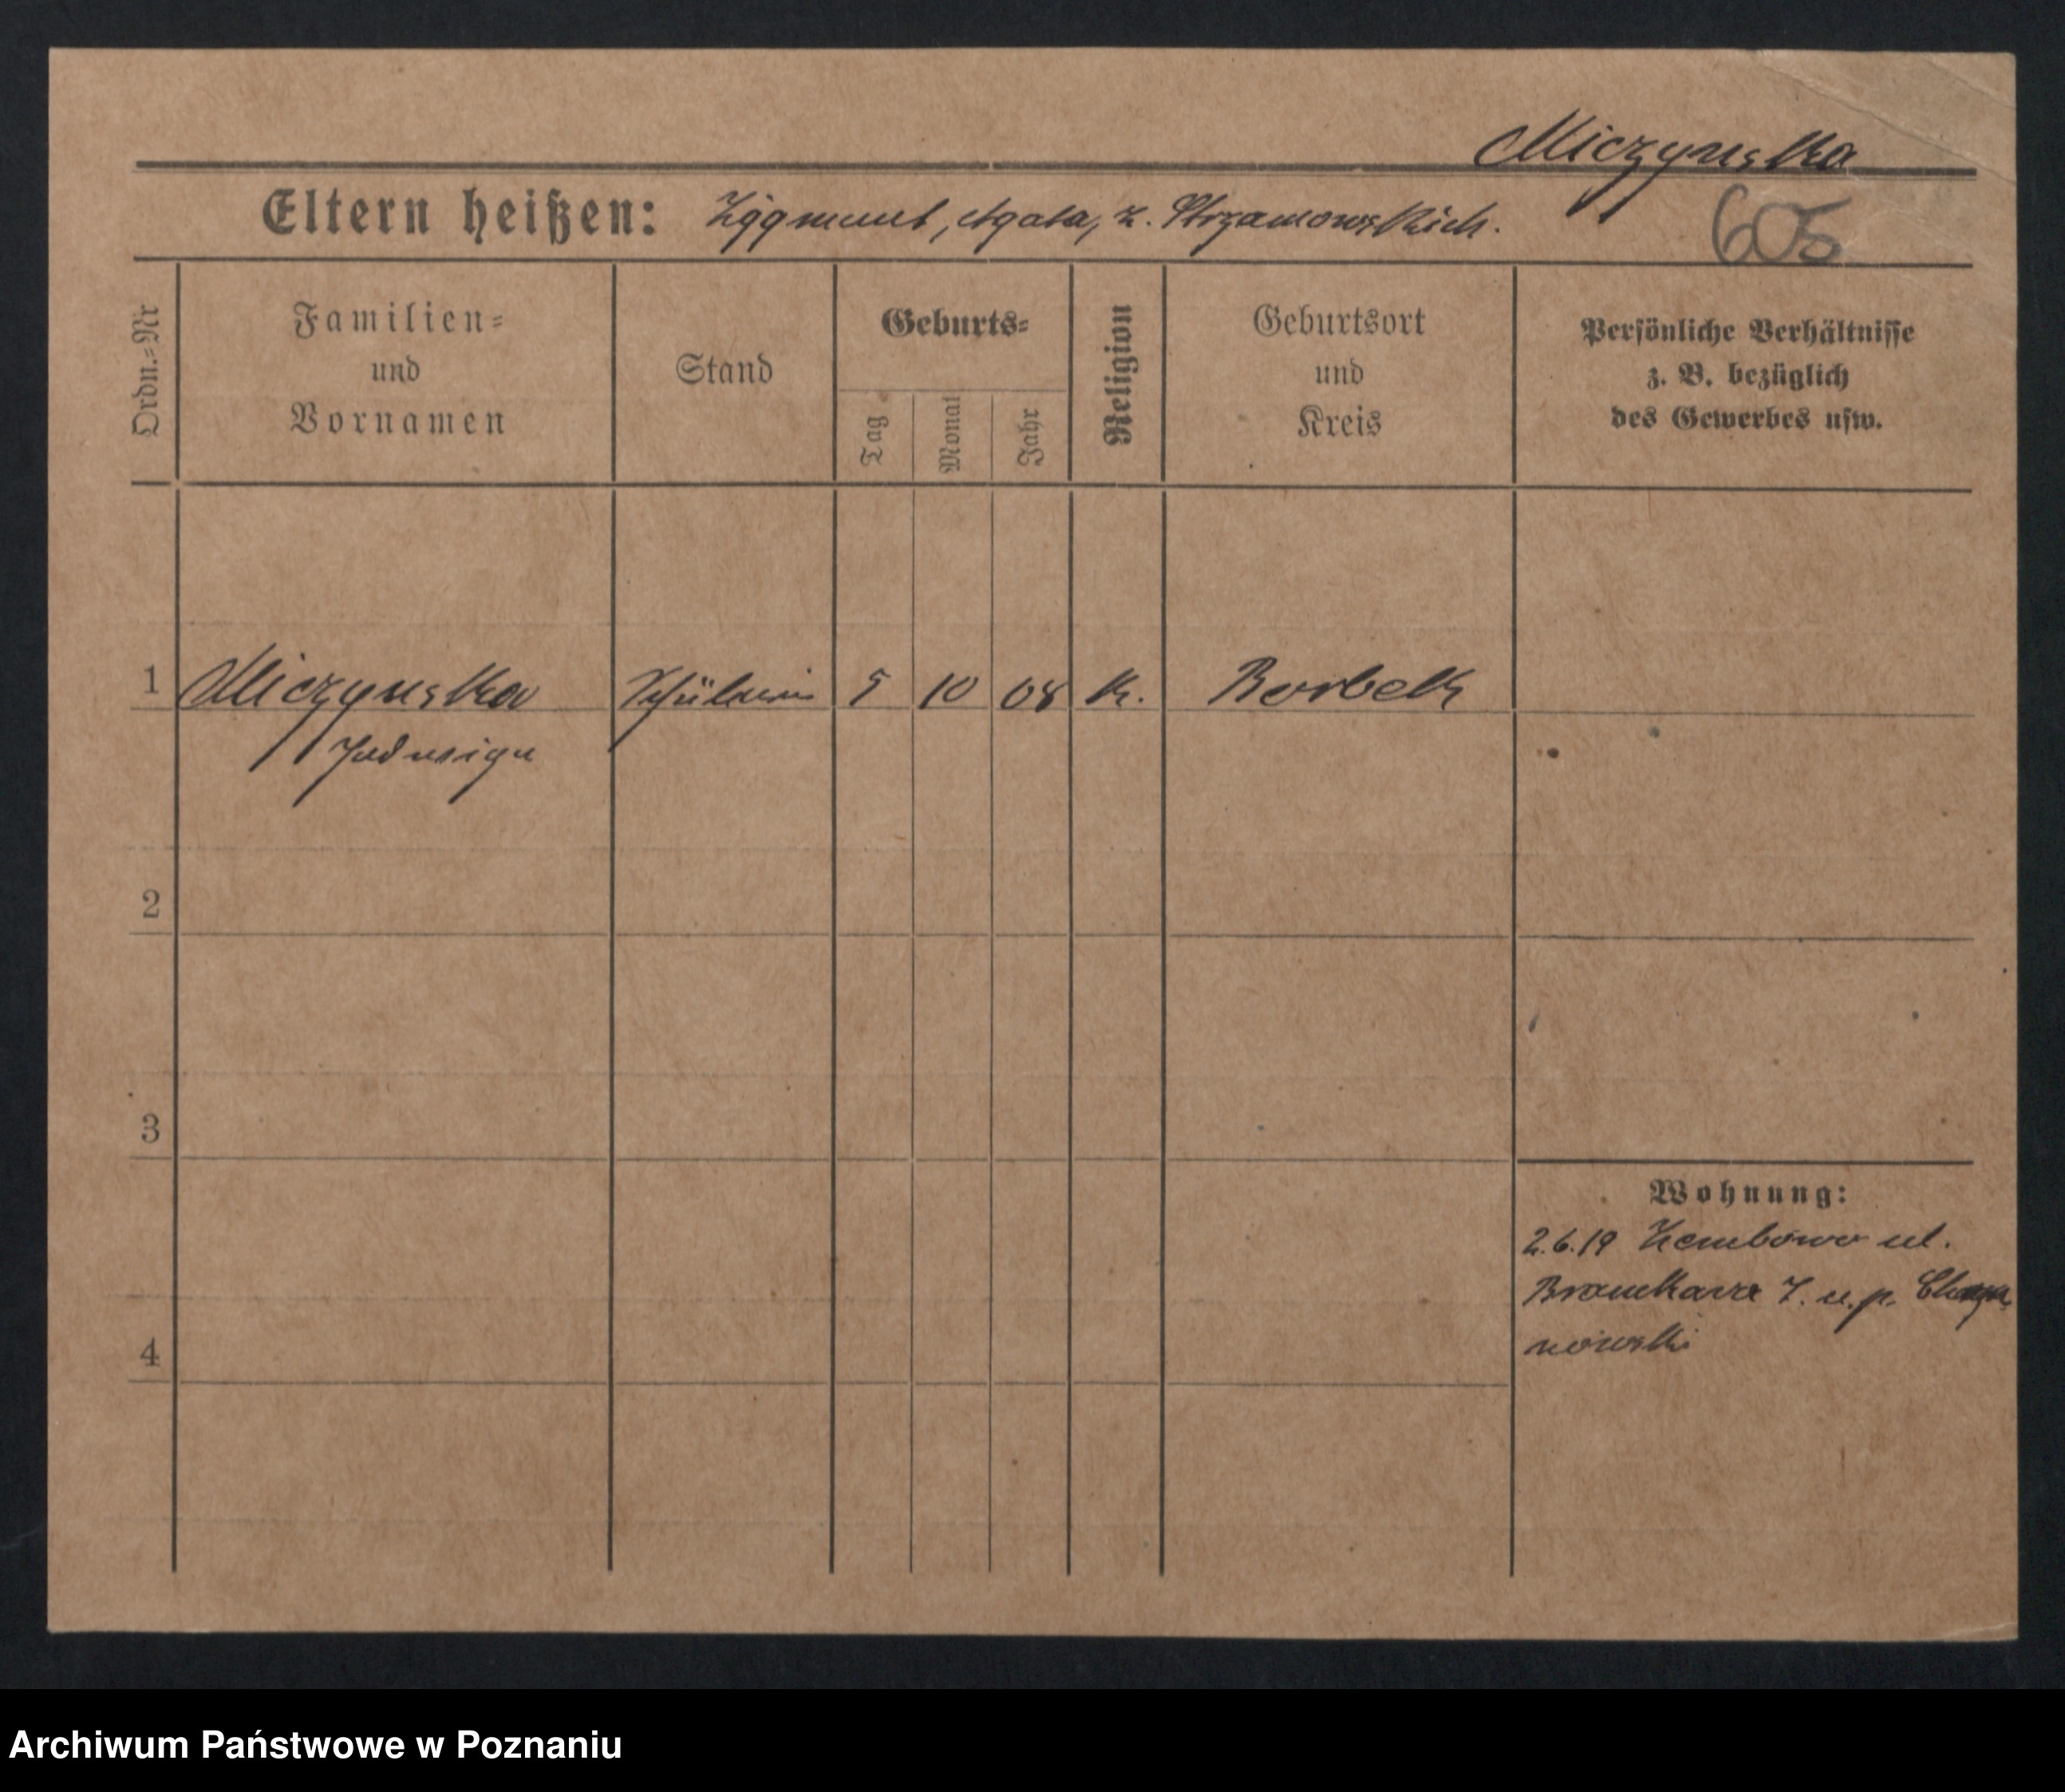 Miczynska
Eltern heißen: Zygmunt, Agata, z. Strzamowskich.
605
Ordn.=Nr
Familien=
und
Vornamen
Stand
Geburts=
Tag
Monat
Jahr
Religion
Geburtsort
und
Kreis
Persönliche Verhältnisse
z. B. bezüglich
des Gewerbes usw.
1 Miczynska Schülerin 5 10 08 K. Borbeck
Jadwiga
2
3
4
Wohnung:
2.6.19 Zembowo ul.
7. u. p.
nowski
Archiwum Państwowe w Poznaniu